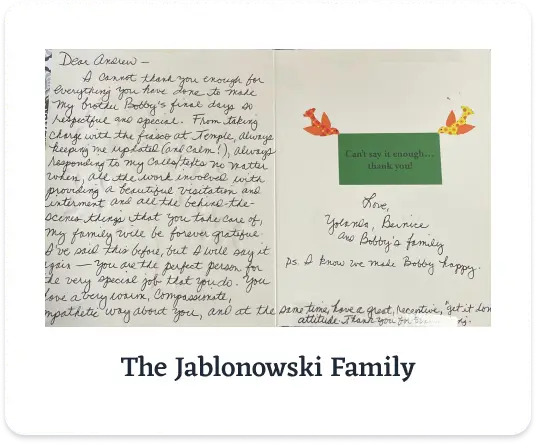 Dear Andrew —
I cannot thank you enough for
everything you have done to make
my brother Bobby's final days so
respectful and special. From taking
charge with the fiasco at Temple, always
keeping me updated (and calm!), always
responding to my calls/texts no matter
when, all the work involved with
providing a beautiful visitation and
interment and all the behind-the-
scenes things that you take care of,
my family will be forever grateful.
I've said this before, but I will say it
again — you are the perfect person for
the very special job that you do. You
have a very warm, compassionate,
mpathetic way about you, and at the same time, have a great, "get it don
attitude. Thank you for
Can't say it enough...
thank you!
Love,
Yolanda, Bernice
and Bobby's family
ps. I know we made Bobby happy.
The Jablonowski Family